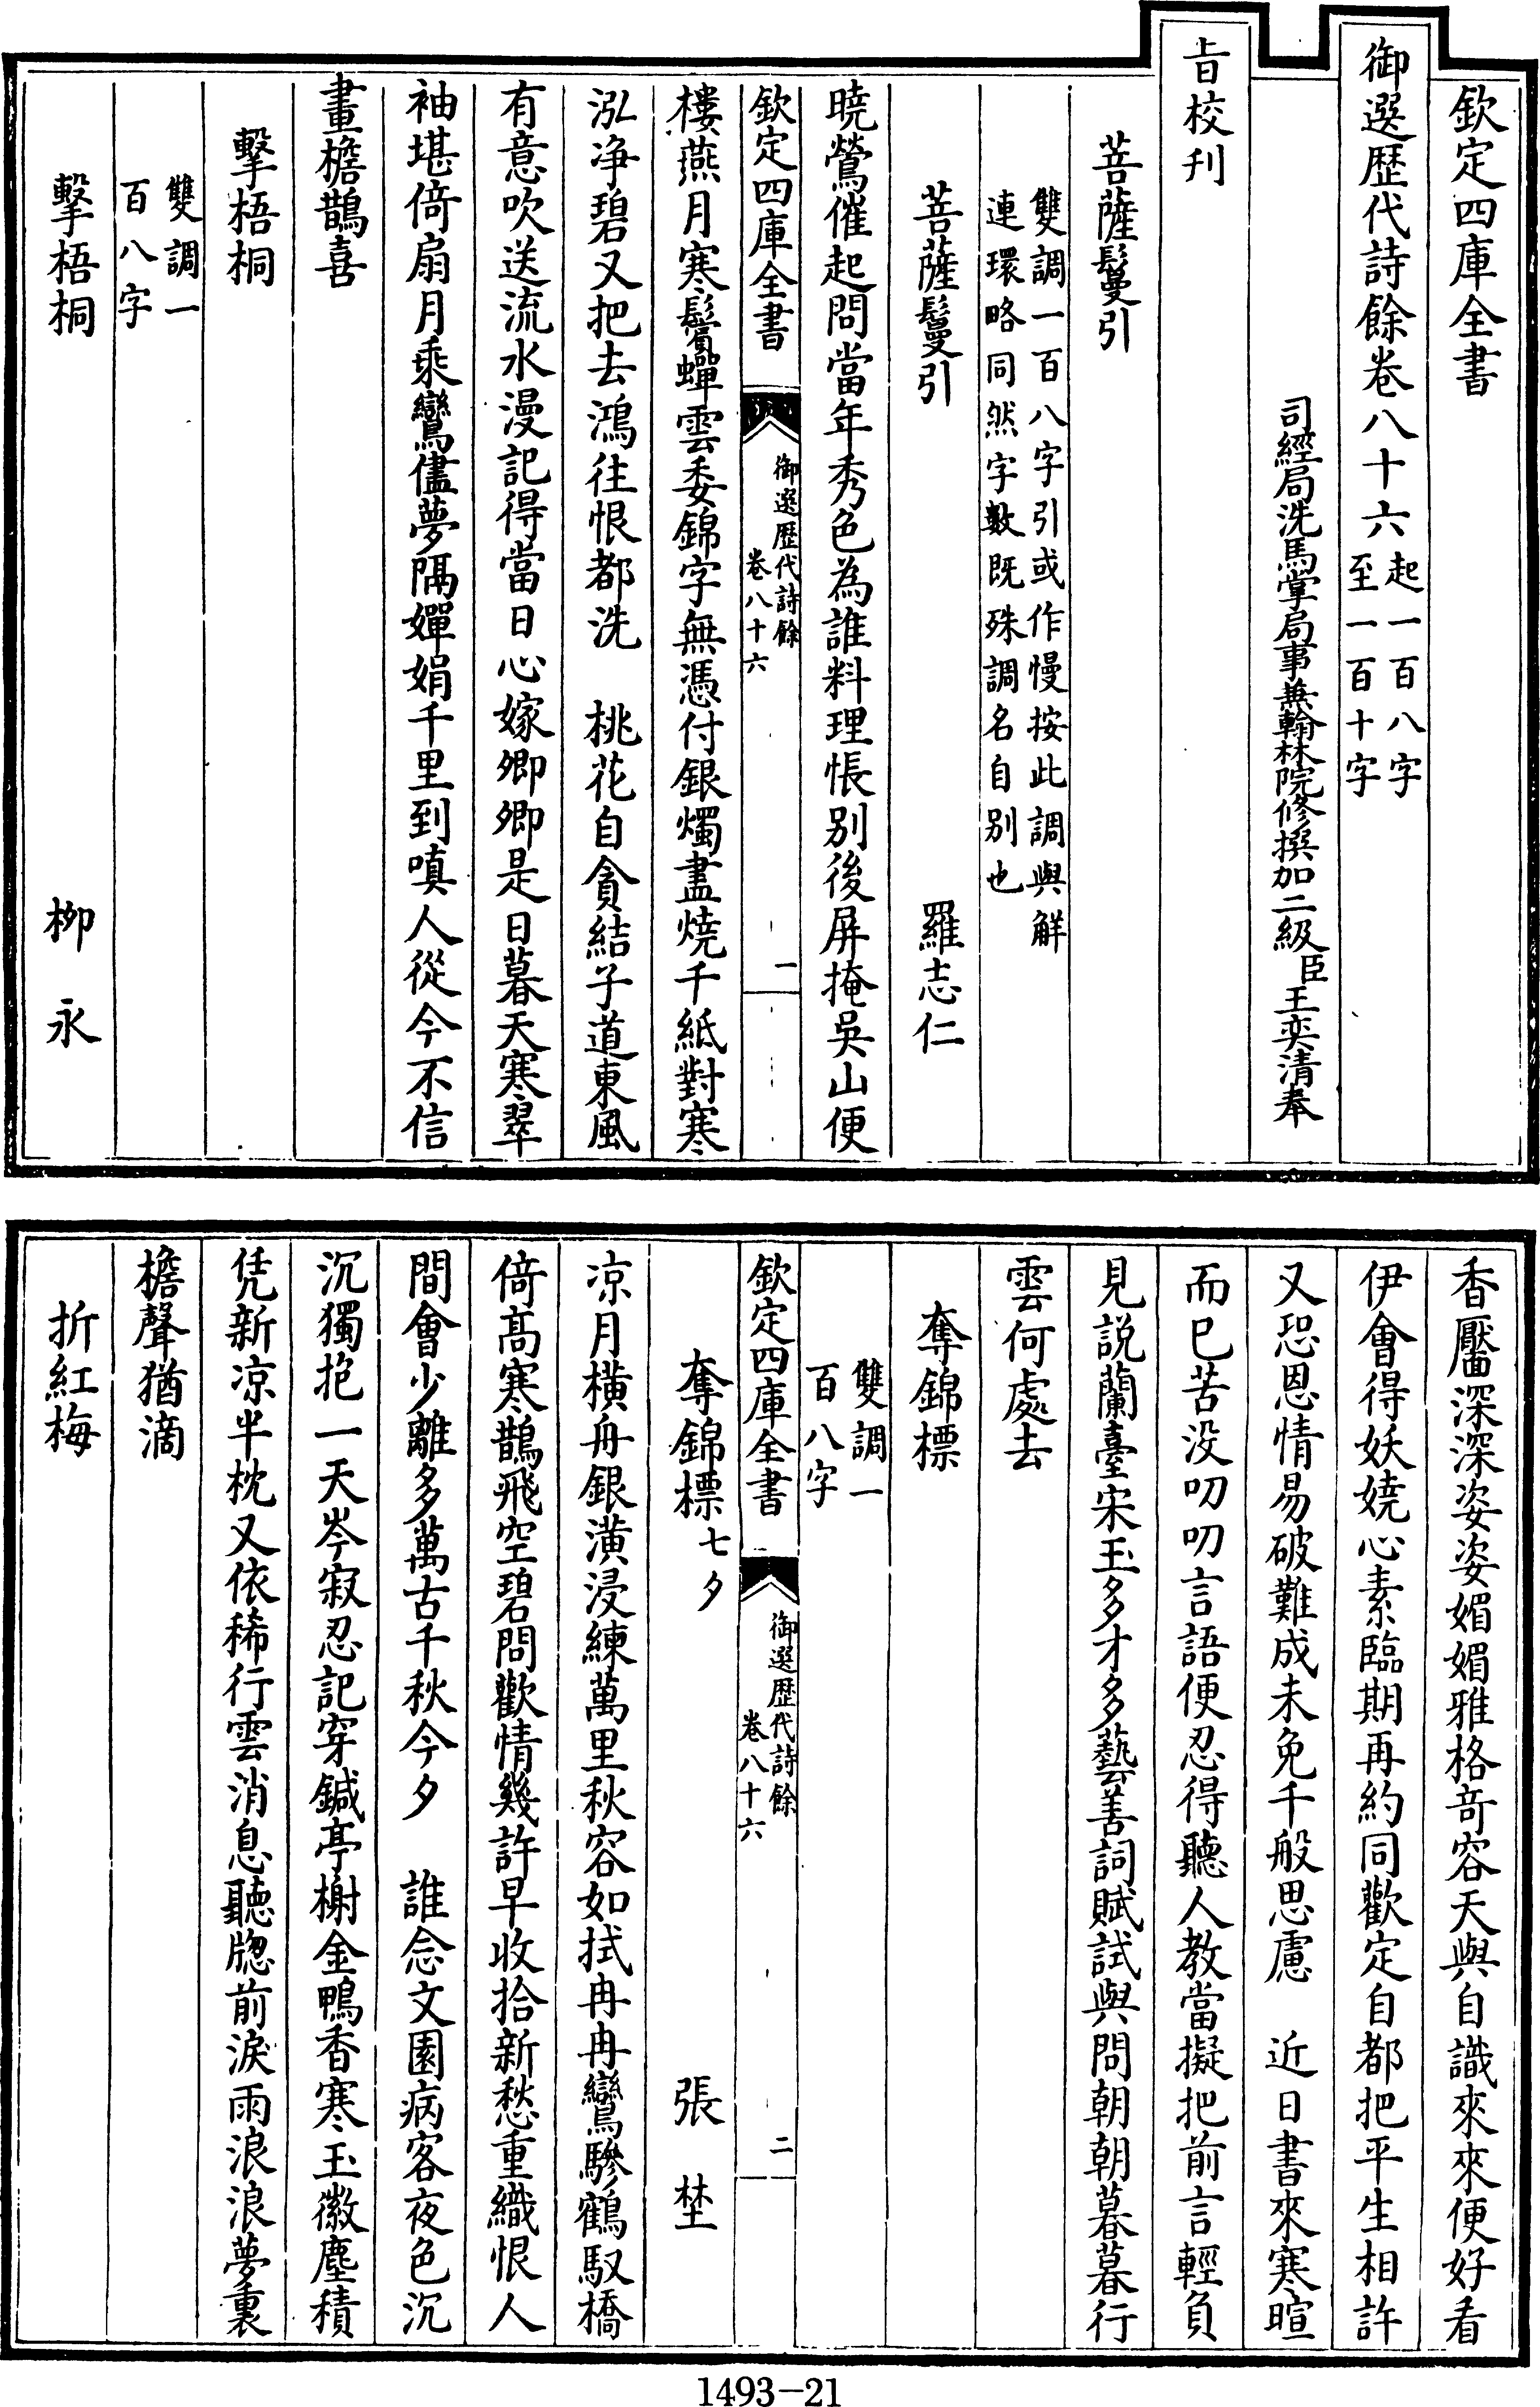 欽定四庫全書
御選歷代詩餘卷八十六起一百八字至一百十字
司經局洗馬掌局事兼翰林院修撰加二級臣王奕清奉
旨校刊
菩薩鬘引
雙調一百八字引或作慢按此調與解
連環略同然字數既殊調名自別也
菩薩鬘引 羅志仁
曉鶯催起問當年秀色為誰料理悵別後屏掩吳山便
欽定四庫全書 御選歷代詩餘卷八十六 一
樓燕月寒鬢蟬雲委錦字無憑付銀燭盡燒千紙對寒
泓净碧又把去鴻往恨都洗 桃花自貪結子道東風
有意吹送流水漫記得當日心嫁卿卿是日暮天寒翠
袖堪倚扇月乘鸞儘夢隔嬋娟千里到嗔人從今不信
畫檐鵲喜
擊梧桐
雙調一
百八字
擊梧桐 柳永
香靨深深姿姿媚媚雅格奇容天與自識來來便好看
伊會得妖嬈心素臨期再約同歡定自都把平生相許
又恐恩情易破難成未免千般思慮 近日書來寒暄
而已苦没叨叨言語便忍得聽人教當擬把前言輕負
見説蘭臺宋玉多才多藝善詞賦試與問朝朝暮暮行
雲何處去
奪錦標
雙調一
百八字
欽定四庫全書 御選歷代詩餘卷八十六 二
奪錦標七夕 張埜
凉月橫舟銀潢浸練萬里秋容如拭冉冉鸞驂鶴馭橋
倚高寒鵲飛空碧問歡情幾許早收拾新愁重織恨人
間會少離多萬古千秋今夕 誰念文園病客夜色沉
沉獨抱一天岑寂忍記穿鍼亭榭金鴨香寒玉徽塵積
凭新凉半枕又依稀行雲消息聽牕前淚雨浪浪夢裏
檐聲猶滴
折紅梅
1493-21